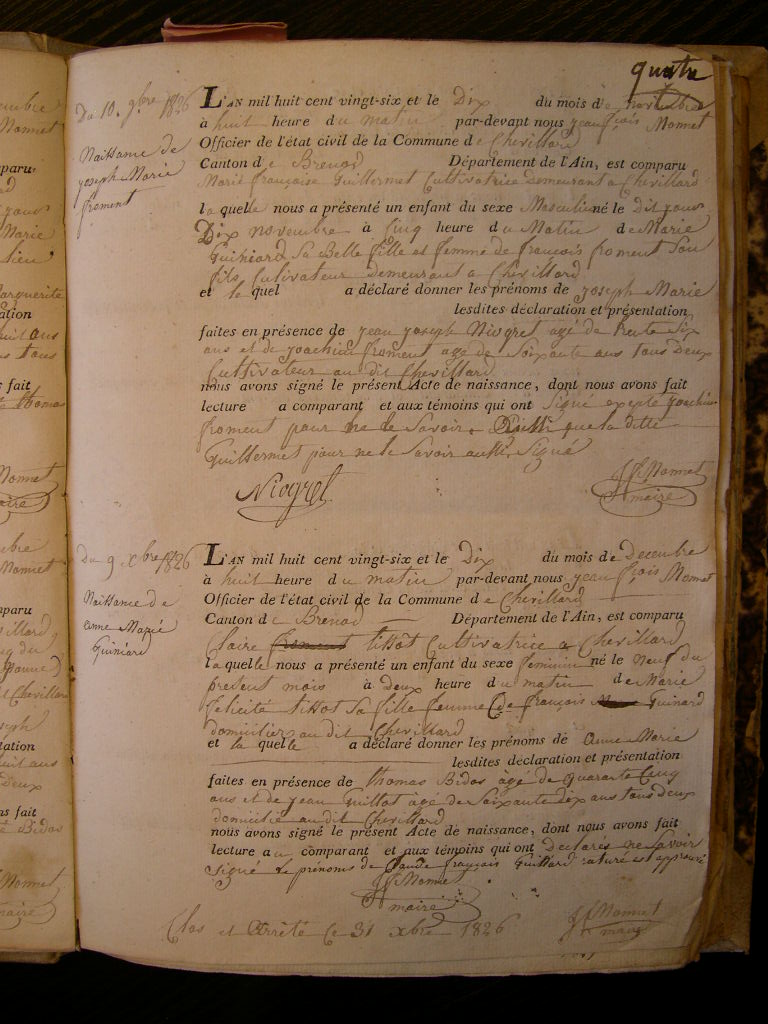 quatre
Du 10. 9bre 1826
Naissance de
joseph Marie
froment
L'AN mil huit cent vingt-six et le Dix du mois de novembre
à huit heure du matin par-devant nous jean fçois Monnet
Officier de l'état civil de la Commune de Chevillard
Canton de Brenod Département de l'Ain, est comparu
Marie françoise Guillermet Cultivatrice Demeurant a Chevillard
la quelle nous a présenté un enfant du sexe Masculin né le dit jour
Dix novembre à Cinq heure du Matin de Marie
Guiniard Sa Belle fille et femme de françois froment Son
fils Cultivateur Demeurant a Chevillard
et la quel a déclaré donner les prénoms de joseph Marie
lesdites déclaration et présentation
faites en présence de jean joseph Niogret agé de trente Six
ans et de joachim froment agé de Soixante ans tous Deux
Cultivateur au dit Chevillard
nous avons signé le présent Acte de naissance, dont nous avons fait
lecture a comparant et aux témoins qui ont Signé excepté joachim
froment pour ne le Savoir. que la ditte
Guillermet pour ne le Savoir Signé
Niogret
JF Monnet
maire
Du 9 xbre 1826
Naissance de
anne Marie
Guiniard
L'AN mil huit cent vingt-six et le Dix du mois de Decembre
à huit heure du matin par-devant nous jean fçois Monnet
Officier de l'état civil de la Commune de Chevillard
Canton de Brenod Département de l'Ain, est comparu
Claire froment tissot Cultivatrice a Chevillard
la quelle nous a présenté un enfant du sexe feminin né le Neuf du
present mois à deux heure du matin de Marie
felicité tissot Sa fille femme de françois Guinard
domicilier au dit Chevillard
et la quelle a déclaré donner les prénoms de Anne Marie
lesdites déclaration et présentation
faites en présence de thomas Bidos àgé de quarante Cinq
ans et de jean Guillot àgé de Soixante Dix ans tous deux
domicilié au dit Chevillard
nous avons signé le présent Acte de naissance, dont nous avons fait
lecture au comparant et aux témoins qui ont Declarés ne Savoir
Signé Le prénoms de Claude françois Guillard raturé est approuvé
JF Monnet
maire
Clos et Arrêté Ce 31 xbre 1826
JF Monnet
maire